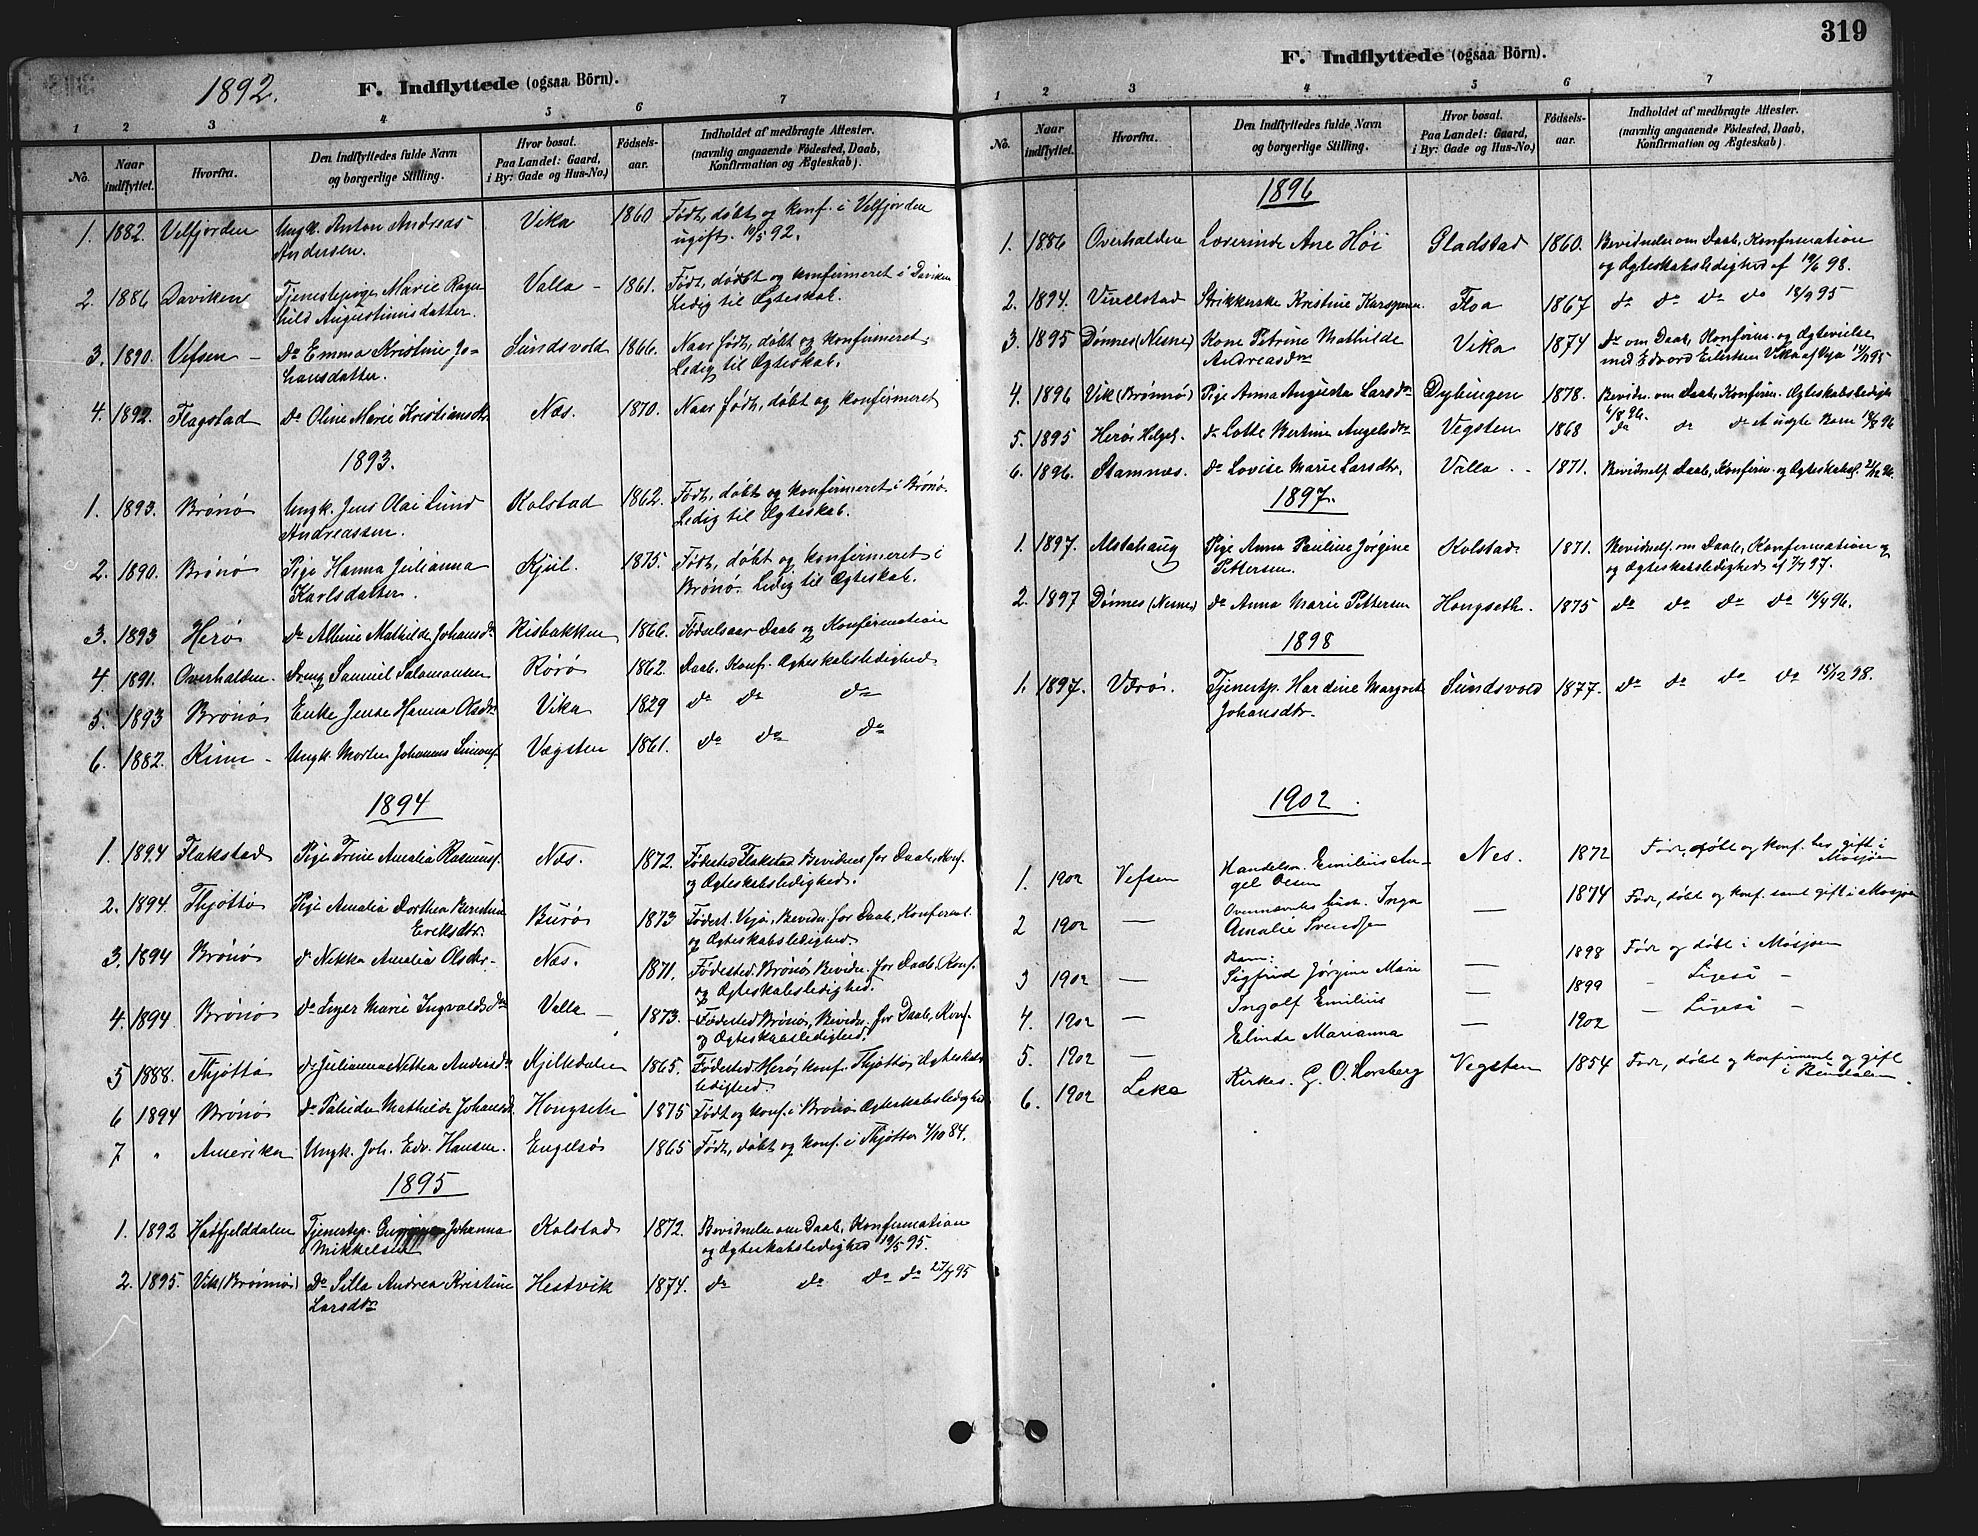 1892.
F. Indflyttede (ogsaa Börn).
1 2 3 4 5 6 7
No. Naar indflyttet. Hvorfra. Den Indflyttedes fulde Navn og borgerlige Stilling. Hvor bosat. Paa Landet: Gaard, i By: Gade og Hus-No.) Födsels-aar. Indholdet af medbragte Attester. (navnlig angaaende Födested, Daab, Konfirmation og Ægteskab).
1. 1882. Velfjorden Ungk. Anton Andreas Vika 1860 Født, døbt og konf. i Velfjorden
Andersen. ugift. 10/5 92.
2. 1886 Daviken Tjenestepige Marie Ragn Valla - 1861. Født, døbt og konfirmeret i Daviken
hild Augustinusdatter. Ledig til Ægteskab.
3. 1890. Vefsen - Do Emma Kristine Jo= Sundsvold 1866. Naar født, døbt og konfirmeret.
hansdatter. Ledig til Ægteskab.
4. 1892. Flagstad Do Oline Marie Kristiansdtr Næs. 1870. Naar født, døbt og konfirmeret
1893.
1. 1893. Brønø Ungk. Jens Olai Lund Kolstad 1862. Født, døbt og konfirmeret i Brønø.
Andreassen. Ledig til Ægteskab.
2. 1890. Brønø Pige Hanna Julianna Kjul. 1875. Født, døbt og konfirmeret i
Karlsdatter. Brønø. Ledig til Ægteskab.
3. 1893 Herø do Albine Mathilde Johansdr Risbakken 1866. Fødselsaar Daab og Konfirmation
4. 1891. Overhalden. Dreng Samuel Salomonsen Rørø 1862. Daab. Konf. Ægteskabsledighed
5. 1893 Brønø Enke Jense Hanna Olsdr. Vika 1829 do do do
6. 1882. Kinn - Ungk. Morten Johannes Simons. Vegsten 1861. do do do
1894
1. 1894 Flakstad Pige Trine Amalia Rasmuss. Næs. 1872. Fødested Flakstad Bevidnet for Daab, Konf.
og Ægteskabsledighed.
2. 1894. Thjøttø Pige Amalia Dorthea Berntine Burø 1873 Fødest. Vega, Bevidn. for Daab, Konfermt.
Eriksdtr. og Ægteskabsledighed.
3. 1894 Brønø do Nikka Amalia Olsdtr. Næs. 1871. Fødested. Brønø, Bevidn. for Daab, Konf.
og Ægteskabsledighed.
4. 1894. Brønø do Inger Marie Ingvaldsdr Valla - 1873. Fødested Brønø, Bevidn. for Daab, Konf.
og Ægteskabsledighed.
5 1888. Thjøttø do Julianna Nettea Andersdr Kjilledalen 1865. Fødested Herø, konf. Thjøttø, Ægteskabs
ledighed.
6 1894 Brønø do Mathilde Johansd. Hongseth 1875 Født og konf. i Brønø. Ægteskabsledighed
7 " Amerika Ungk. Joh. Edv. Hansen. Engelsø 1865 Født, døbt og konf. i Thjøtta 4/10 84.
1895
1. 1892 Hatfjelddalen Tjenestep. Johanna Kolstad 1872. Bevidnelse om Daab, Konfirmation
Mikkelsen og Ægteskabsledighed 19/5 95.
2. 1895. Vik (Brønnø) Do Silla Andrea Kristine Hestvik 1874. do do do do 27/7 95
Larsdtr

319
F. Indflyttede (ogsaa Börn).
1 2 3 4 5 6 7
No. Naar indflyttet. Hvorfra. Den Indflyttedes fulde Navn og borgerlige Stilling. Hvor bosat. Paa Landet: Gaard, i By: Gade og Hus-No.) Födsels-aar. Indholdet af medbragte Attester. (navnlig angaaende Födested, Daab, Konfirmation og Ægteskab).
1896
1. 1886 Overhalden Lærerinde Ane Høi Gladstad 1860. Bevidnelse om Daab, Konfirmation
og Ægteskabsledighed af 19/6 98.
2. 1894. Vinelstad Strikkerske Kristine Kaspersen Floa 1867 do do do do 18/9 95
3. 1895 Dønnes (Nesne) Kone Petrine Mathilde Vika 1874 do om Daab, Konfirm. og Ægtevielse
Andreasdtr med Edvard Eilertsen Vika af Vega 14/11 95
4. 1896 Vik (Brønnø) Pige Anna Augusta Larsdtr Dybingen 1878. Bevidn. om Daab, Konfirm. Ægteskabsledigh
6/8 96.
5. 1895 Herø Helgel. do Lotte Bertine Angelsdtr Vegsten 1868 do do do et uægte Barn 18/8 96
6. 1896. Stamnes. do Lovise Marie Larsdtr. Valla - 1871. Bevidnels. Daab, Konfirm. og Ægteskabsl. 21/12 96.
1897.
1. 1897. Alstahaug Pige Anna Pauline Jørgine Kolstad 1871. Bevidnels. om Daab, Konfermation og
Pettersen. og Ægteskabsledighed af 7/7 97.
2. 1897 Dønnes (Nesne) do Anna Marie Pettersen Hongseth. 1875 do do do do 14/9 96.
1898
1. 1897. Værø. Tjenestp. Hardine Margret Sundsvold 1877. do do do do 15/12 98.
Johansdtr.
1902.
1. 1902 Vefsen Handelsm. Emilius An- Nes. 1872 Født, døbt og konf. bes. gift i
gel Olsen Mosjøen
2 1902 — Ovennævntes hust. Inga — 1874 Født, døbt og konf. samt gift i Mosjøen
Amalie Svendsen
Barn:
3 1902 — Sigfrid Jørgine Marie — 1898 Født og døbt i Mosjøen
4. 1902 — Ingolf Emilius — 1899 - Ligeså -
5. 1902 — Elinda Marianna — 1902 - Ligeså -
6. 1902 Leka Kirkes. G. O. Horsberg Vegsten 1854 Født, døbt og konfirmeret og gift
i Bindalen.